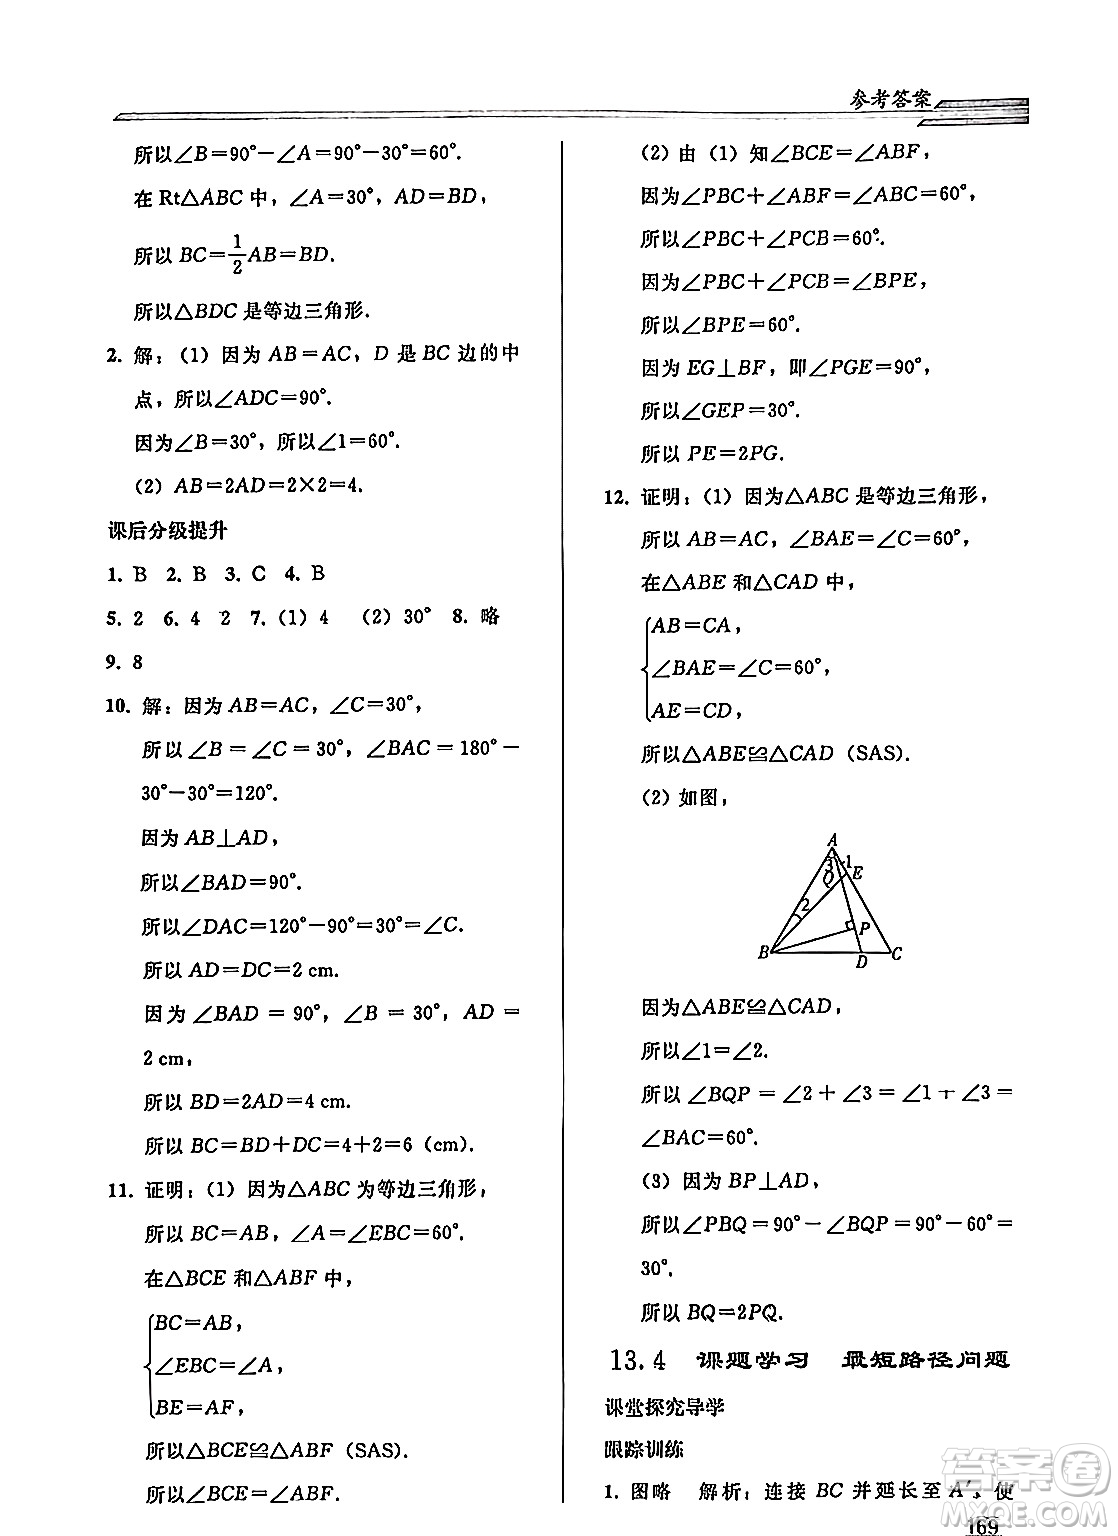 参考答案
所以∠B=90°−∠A=90°−30°=60°.
在 Rt△ABC 中，∠A=30°，AD=BD，
所以 BC=1/2AB=BD.
所以△BDC 是等边三角形.
2. 解：(1) 因为 AB=AC，D 是 BC 边的中
点，所以∠ADC=90°.
因为∠B=30°，所以∠1=60°.
(2) AB=2AD=2×2=4.
课后分级提升
1. B 2. B 3. C 4. B
5. 2 6. 4 2 7. (1) 4 (2) 30° 8. 略
9. 8
10. 解：因为 AB=AC，∠C=30°，
所以 ∠B=∠C=30°，∠BAC=180°−
30°−30°=120°.
因为 AB⊥AD，
所以∠BAD=90°.
所以∠DAC=120°−90°=30°=∠C.
所以 AD=DC=2 cm.
因为 ∠BAD=90°，∠B=30°，AD=
2 cm，
所以 BD=2AD=4 cm.
所以 BC=BD+DC=4+2=6 (cm).
11. 证明：(1) 因为△ABC 为等边三角形，
所以 BC=AB，∠A=∠EBC=60°.
在△BCE 和△ABF 中，
BC=AB，
∠EBC=∠A，
BE=AF，
所以△BCE≌△ABF (SAS).
所以∠BCE=∠ABF.
(2) 由 (1) 知∠BCE=∠ABF，
因为∠PBC+∠ABF=∠ABC=60°，
所以∠PBC+∠PCB=60°.
因为∠PBC+∠PCB=∠BPE，
所以∠BPE=60°.
因为 EG⊥BF，即∠PGE=90°，
所以∠GEP=30°.
所以 PE=2PG.
12. 证明：(1) 因为△ABC 是等边三角形，
所以 AB=AC，∠BAE=∠C=60°，
在△ABE 和△CAD 中，
AB=CA，
∠BAE=∠C=60°，
AE=CD，
所以△ABE≌△CAD (SAS).
(2) 如图，
A
3 1
Q E
2
P
B D C
因为△ABE≌△CAD，
所以∠1=∠2.
所以 ∠BQP=∠2+∠3=∠1+∠3=
∠BAC=60°.
(3) 因为 BP⊥AD，
所以∠PBQ=90°−∠BQP=90°−60°=
30°.
所以 BQ=2PQ.
13.4 课题学习 最短路径问题
课堂探究导学
跟踪训练
1. 图略 解析：连接 BC 并延长至 A′，使
答案圈
169